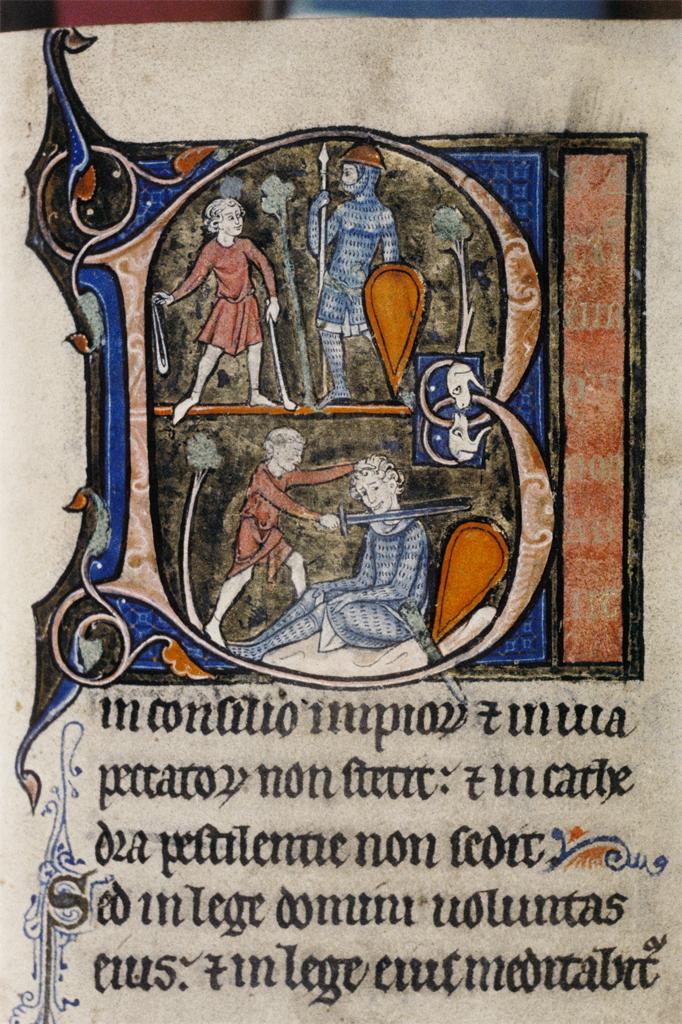 B
in consilio impioꝝ ⁊ in uia
peccatoꝝ non stetit: ⁊ in cathe
dra pestilentie non sedit.
Sed in lege domini uoluntas
eius: ⁊ in lege eius meditabit᷑